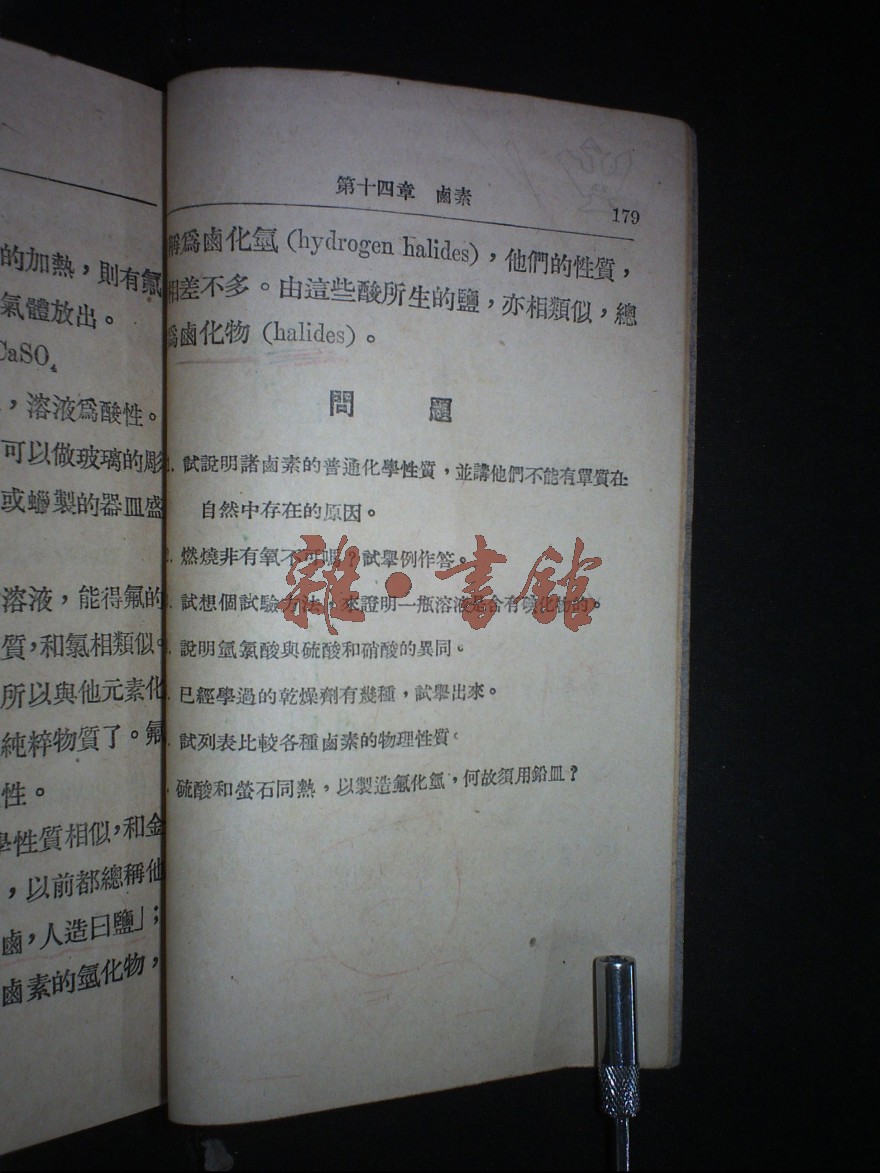 的加熱，則有氟
氣體放出。
CaSO₄
，溶液爲酸性。
可以做玻璃的彫
或蠟製的器皿盛
溶液，能得氟的
質，和氯相類似。
所以與他元素化
純粹物質了。氟
性。
學性質相似，和金
，以前都總稱他
鹵，人造曰鹽」；
鹵素的氫化物，
第十四章　鹵素
179
稱爲鹵化氫 (hydrogen halides)，他們的性質，
相差不多。由這些酸所生的鹽，亦相類似，總
爲鹵化物 (halides)。
問　題
1. 試說明諸鹵素的普通化學性質，並講他們不能有單質在
自然中存在的原因。
2. 燃燒非有氧不可嗎？試舉例作答。
試想個試驗方法，來證明一瓶溶液是含有碘化物的。
說明氫氯酸與硫酸和硝酸的異同。
已經學過的乾燥劑有幾種，試舉出來。
試列表比較各種鹵素的物理性質。
硫酸和螢石同熱，以製造氟化氫，何故須用鉛皿？
雜·書館